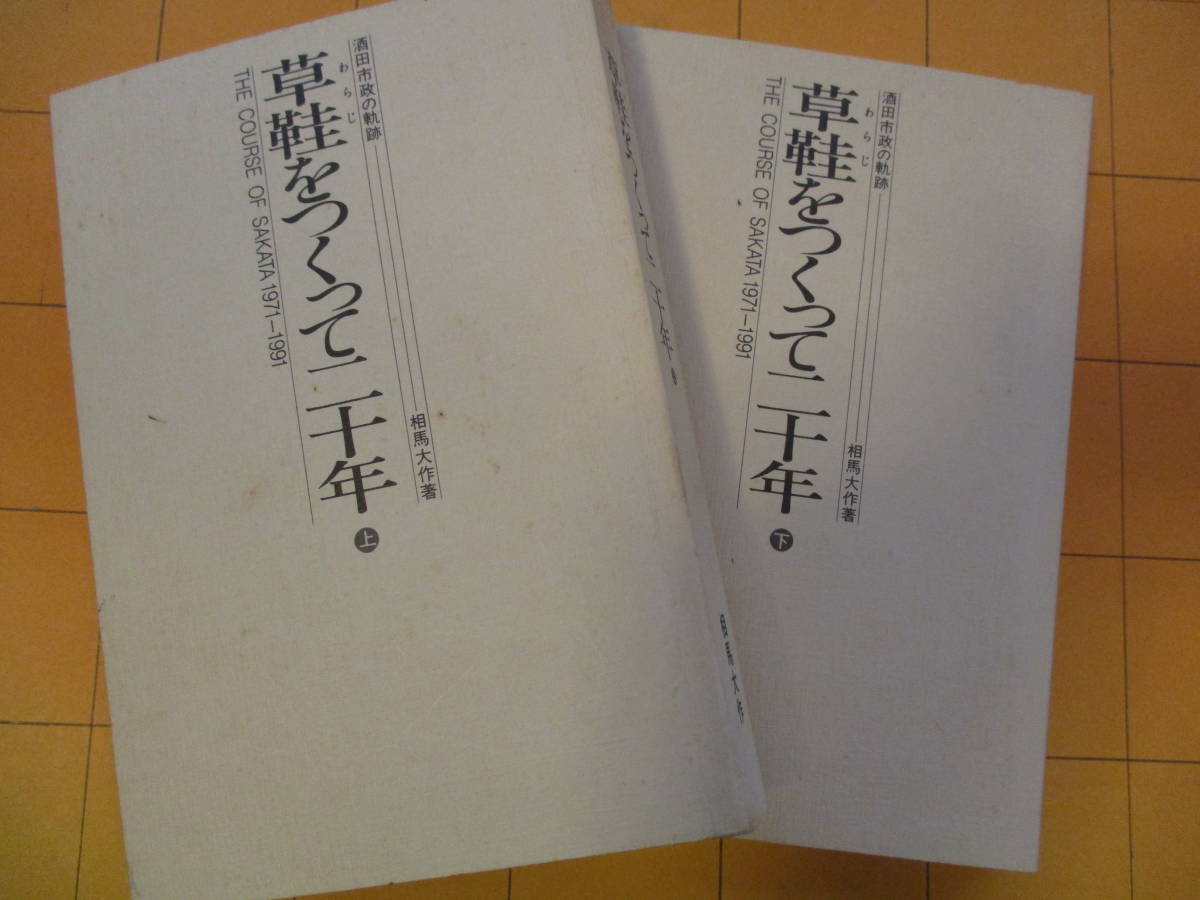 酒田市政の軌跡
草鞋をつくって二十年 上
わらじ
THE COURSE OF SAKATA 1971—1991
相馬大作著
草鞋をつくって二十年 上
相馬大作
酒田市政の軌跡
草鞋をつくって二十年 下
わらじ
THE COURSE OF SAKATA 1971—1991
相馬大作著